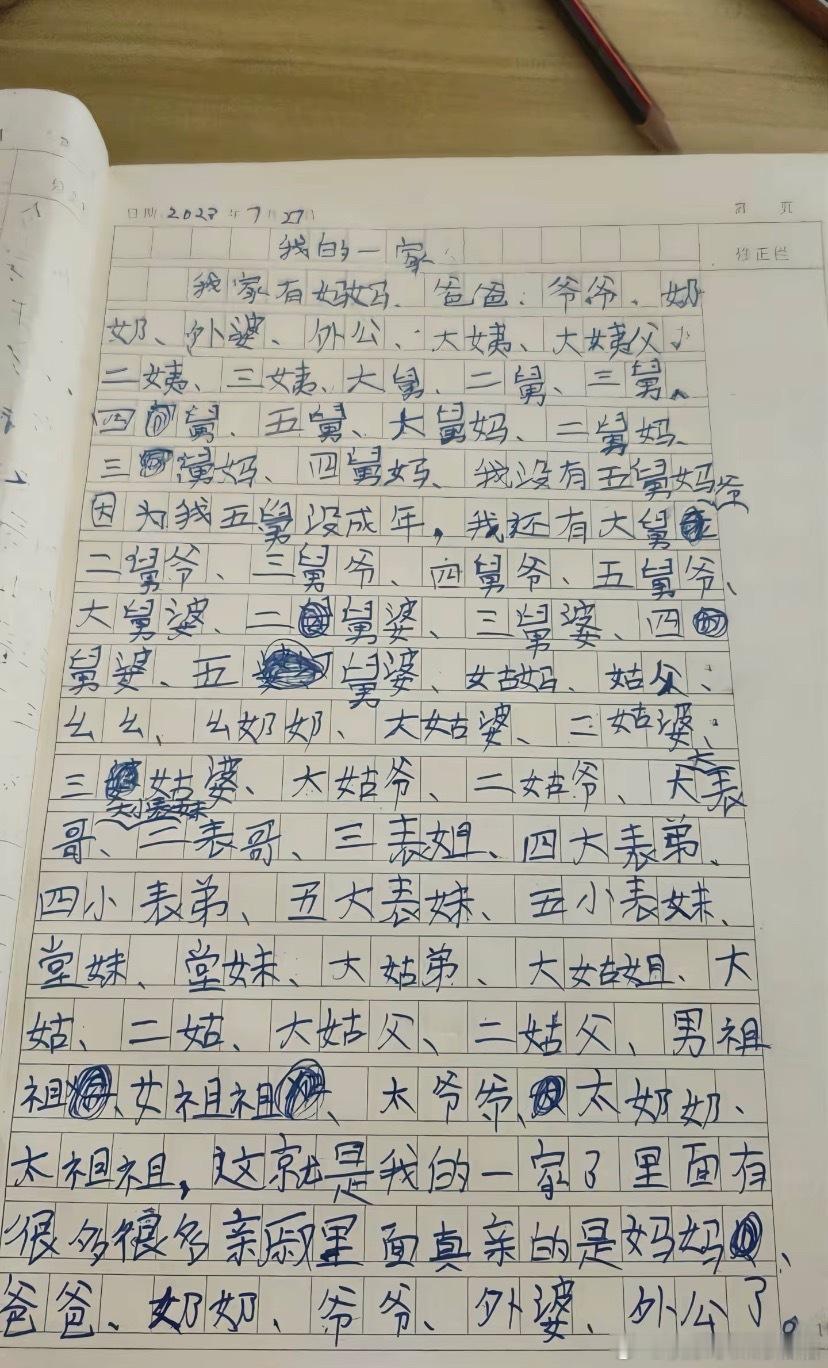 日期 2023 年 7 月 27 日
页
我的一家
修正栏
我家有妈妈、爸爸、爷爷、奶
奶、外婆、外公、大姨、大姨父、
二姨、三姨、大舅、二舅、三舅、
四舅、五舅、大舅妈、二舅妈、
三舅妈、四舅妈、我没有五舅妈
因为我五舅没成年,我还有大舅爷
二舅爷、三舅爷、四舅爷、五舅爷、
大舅婆、二舅婆、三舅婆、四
舅婆、五舅婆、姑妈、姑父、
幺幺、幺奶奶、大姑婆、二姑婆、
三姑婆、大姑爷、二姑爷、大大表
大小表妹
哥、二表哥、三表姐、四大表弟、
四小表弟、五大表妹、五小表妹、
堂妹、堂妹、大姑弟、大姑姐、大
姑、二姑、大姑父、二姑父、男祖
祖、女祖祖、太爷爷、太奶奶、
太祖祖,这就是我的一家了里面有
很多很多亲戚里面真亲的是妈妈、
爸爸、奶奶、爷爷、外婆、外公了。